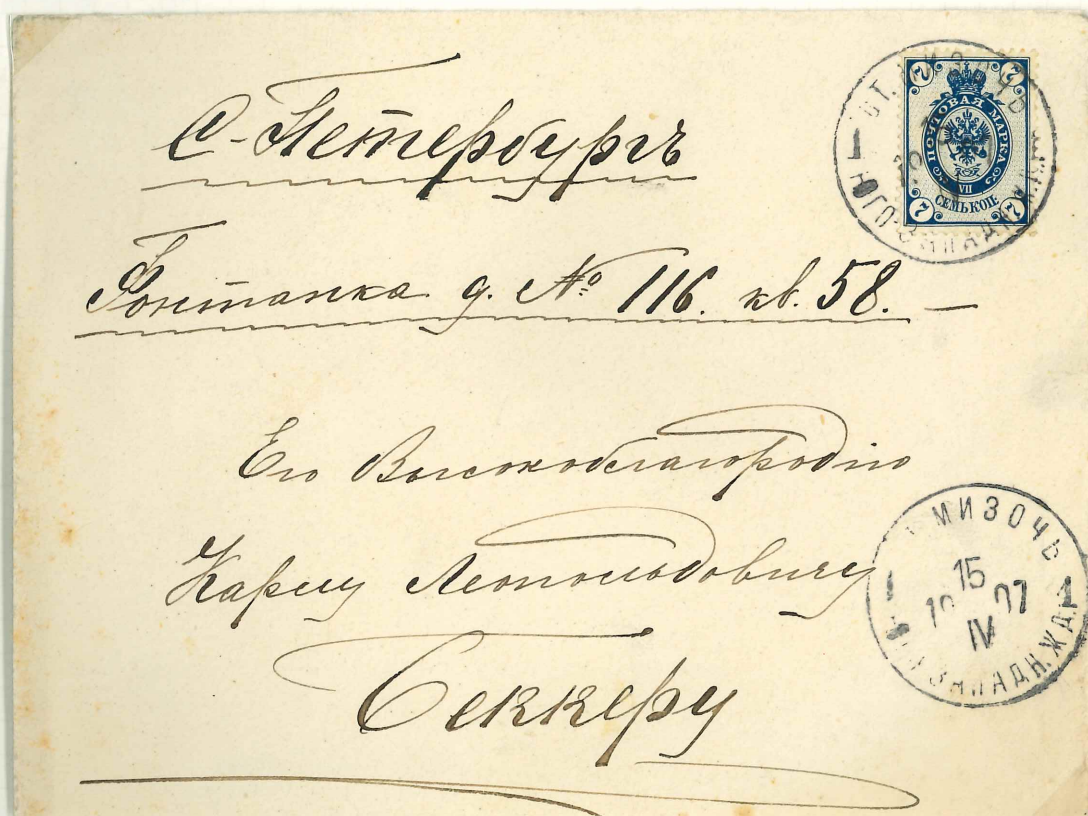 С-Петербургъ
Фонтанка д. № 116. кв. 58. —
Его Высокоблагородію
Карлу Леопольдовичу
Беккеру
7 7
ПОЧТОВАЯ МАРКА
VII
СЕМЬ КОП.
7 7
СТ. МИЗОЧЬ
1
ЮГО-ЗАПАДН.
МИЗОЧЬ
15
1 19 07 1
IV
ЗАПАДН. Ж.Д.